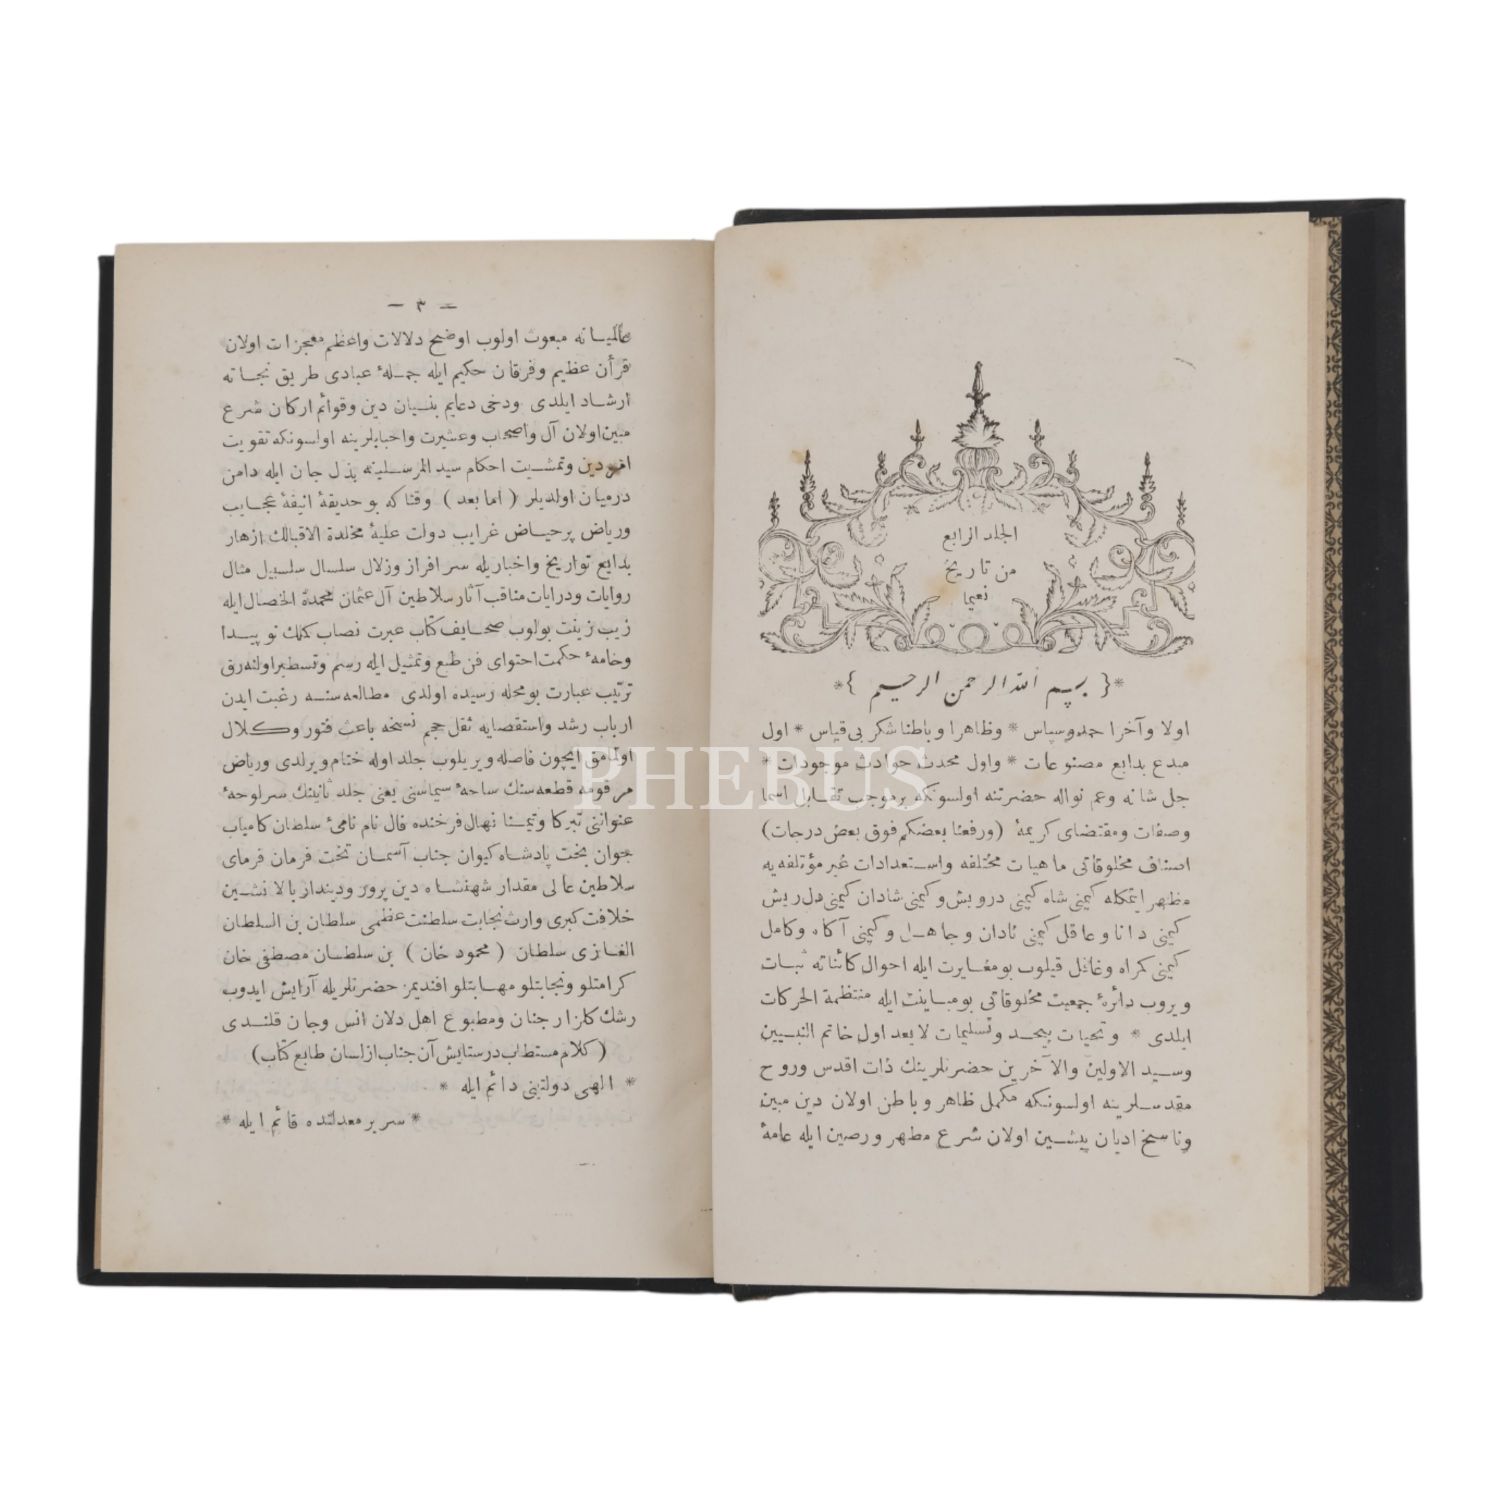 الجلد الرابع
من تاريخ
نعيما
*{ بسم الله الرحمن الرحيم }*
اولا وآخرا حمد وسپاس * وظاهرا وباطنا شكر بى قياس * اول
مبدع بدايع مصنوعات * واول محدث حوادث موجودات *
جل شانه وعم نواله حضرتنه اولسونكه برموجب تقابل اسما
وصفات ومقتضاى كريمهٔ (ورفعنا بعضكم فوق بعض درجات)
اصناف مخلوقاتى ماهيات مختلفه واستعدادات غير مؤتلفه يه
مظهر ايتمكله كيمنى شاه كيمنى درويش وكيمنى شادان كيمنى دل ريش
كيمنى دانا وعاقل كيمنى نادان وجاهل وكيمنى آكاه وكامل
كيمنى كمراه وغافل قيلوب بو مغايرت ايله احوال كائناته ثبات
ويروب دائرهٔ جمعيت مخلوقاتى بو مباينت ايله منتظمة الحركات
ايلدى * وتحيات بيحد وتسليمات لا بعد اول خاتم النبيين
وسيد الاولين والآخرين حضرتلرينك ذات اقدس وروح
مقدسلرينه اولسونكه مكمل ظاهر وباطن اولان دين مبين
وناسخ اديان پيشين اولان شرع مطهر ورصين ايله عامهٔ
— ٣ —
عالميانه مبعوث اولوب اوضح دلالات واعظم معجزات اولان
قرأن عظيم وفرقان حكيم ايله جملهٔ عبادى طريق نجاته
ارشاد ايلدى ودخى دعايم بنيان دين وقوائم اركان شرع
مبين اولان آل واصحاب وعشيرت واحبابلرينه اولسونكه تقويت
امر دين وتمشيت احكام سيد المرسلينه بذل جان ايله دامن
درميان اولديلر ( اما بعد ) وقتا كه بو حديقهٔ انيقهٔ عجايب
ورياض پرحياض غرايب دولت عليهٔ مخلدة الاقبالك ازهار
بدايع تواريخ واخباريله سرافراز وزلال سلسال سلسبيل مثال
روايات ودرايات مناقب آثار سلاطين آل عثمان محمدة الخصال ايله
زيب زينت بولوب صحايف كتاب عبرت نصاب كلك نو پيدا
وخامهٔ حكمت احتواى فن طبع وتمثيل ايله رسم وتسطير اولنه رق
ترتيب عبارت بو محله رسيده اولدى مطالعه سنه رغبت ايدن
ارباب رشد واستقصايه ثقل حجم نسخه باعث فتور وكلال
اولمامق ايچون فاصله ويريلوب جلد اوله ختام ويرلدى ورياض
مرقومه قطعه سنك ساحهٔ سيماسنى يعنى جلد ثانينك سرلوحهٔ
عنواننى تبركا وتيمنا نهال فرخنده فال نام نامىٔ سلطان كامياب
جوان بخت پادشاه كيوان جناب آسمان تخت فرمان فرماى
سلاطين عالى مقدار شهنشاه دين پرور وديندار بالا نشين
خلافت كبرى وارث نجابت سلطنت عظمى سلطان بن السلطان
الغازى سلطان ( محمود خان ) بن سلطان مصطفى خان
كرامتلو ونجابتلو مهابتلو افنديمز حضرتلريله آرايش ايدوب
رشك كلزار جنان ومطبوع اهل دلان انس وجان قلندى
(كلام مستطاب در ستايش آن جناب از لسان طابع كتاب)
* الهى دولتنى دائم ايله *
* سرير معدلتده قائم ايله *
PHEBUS